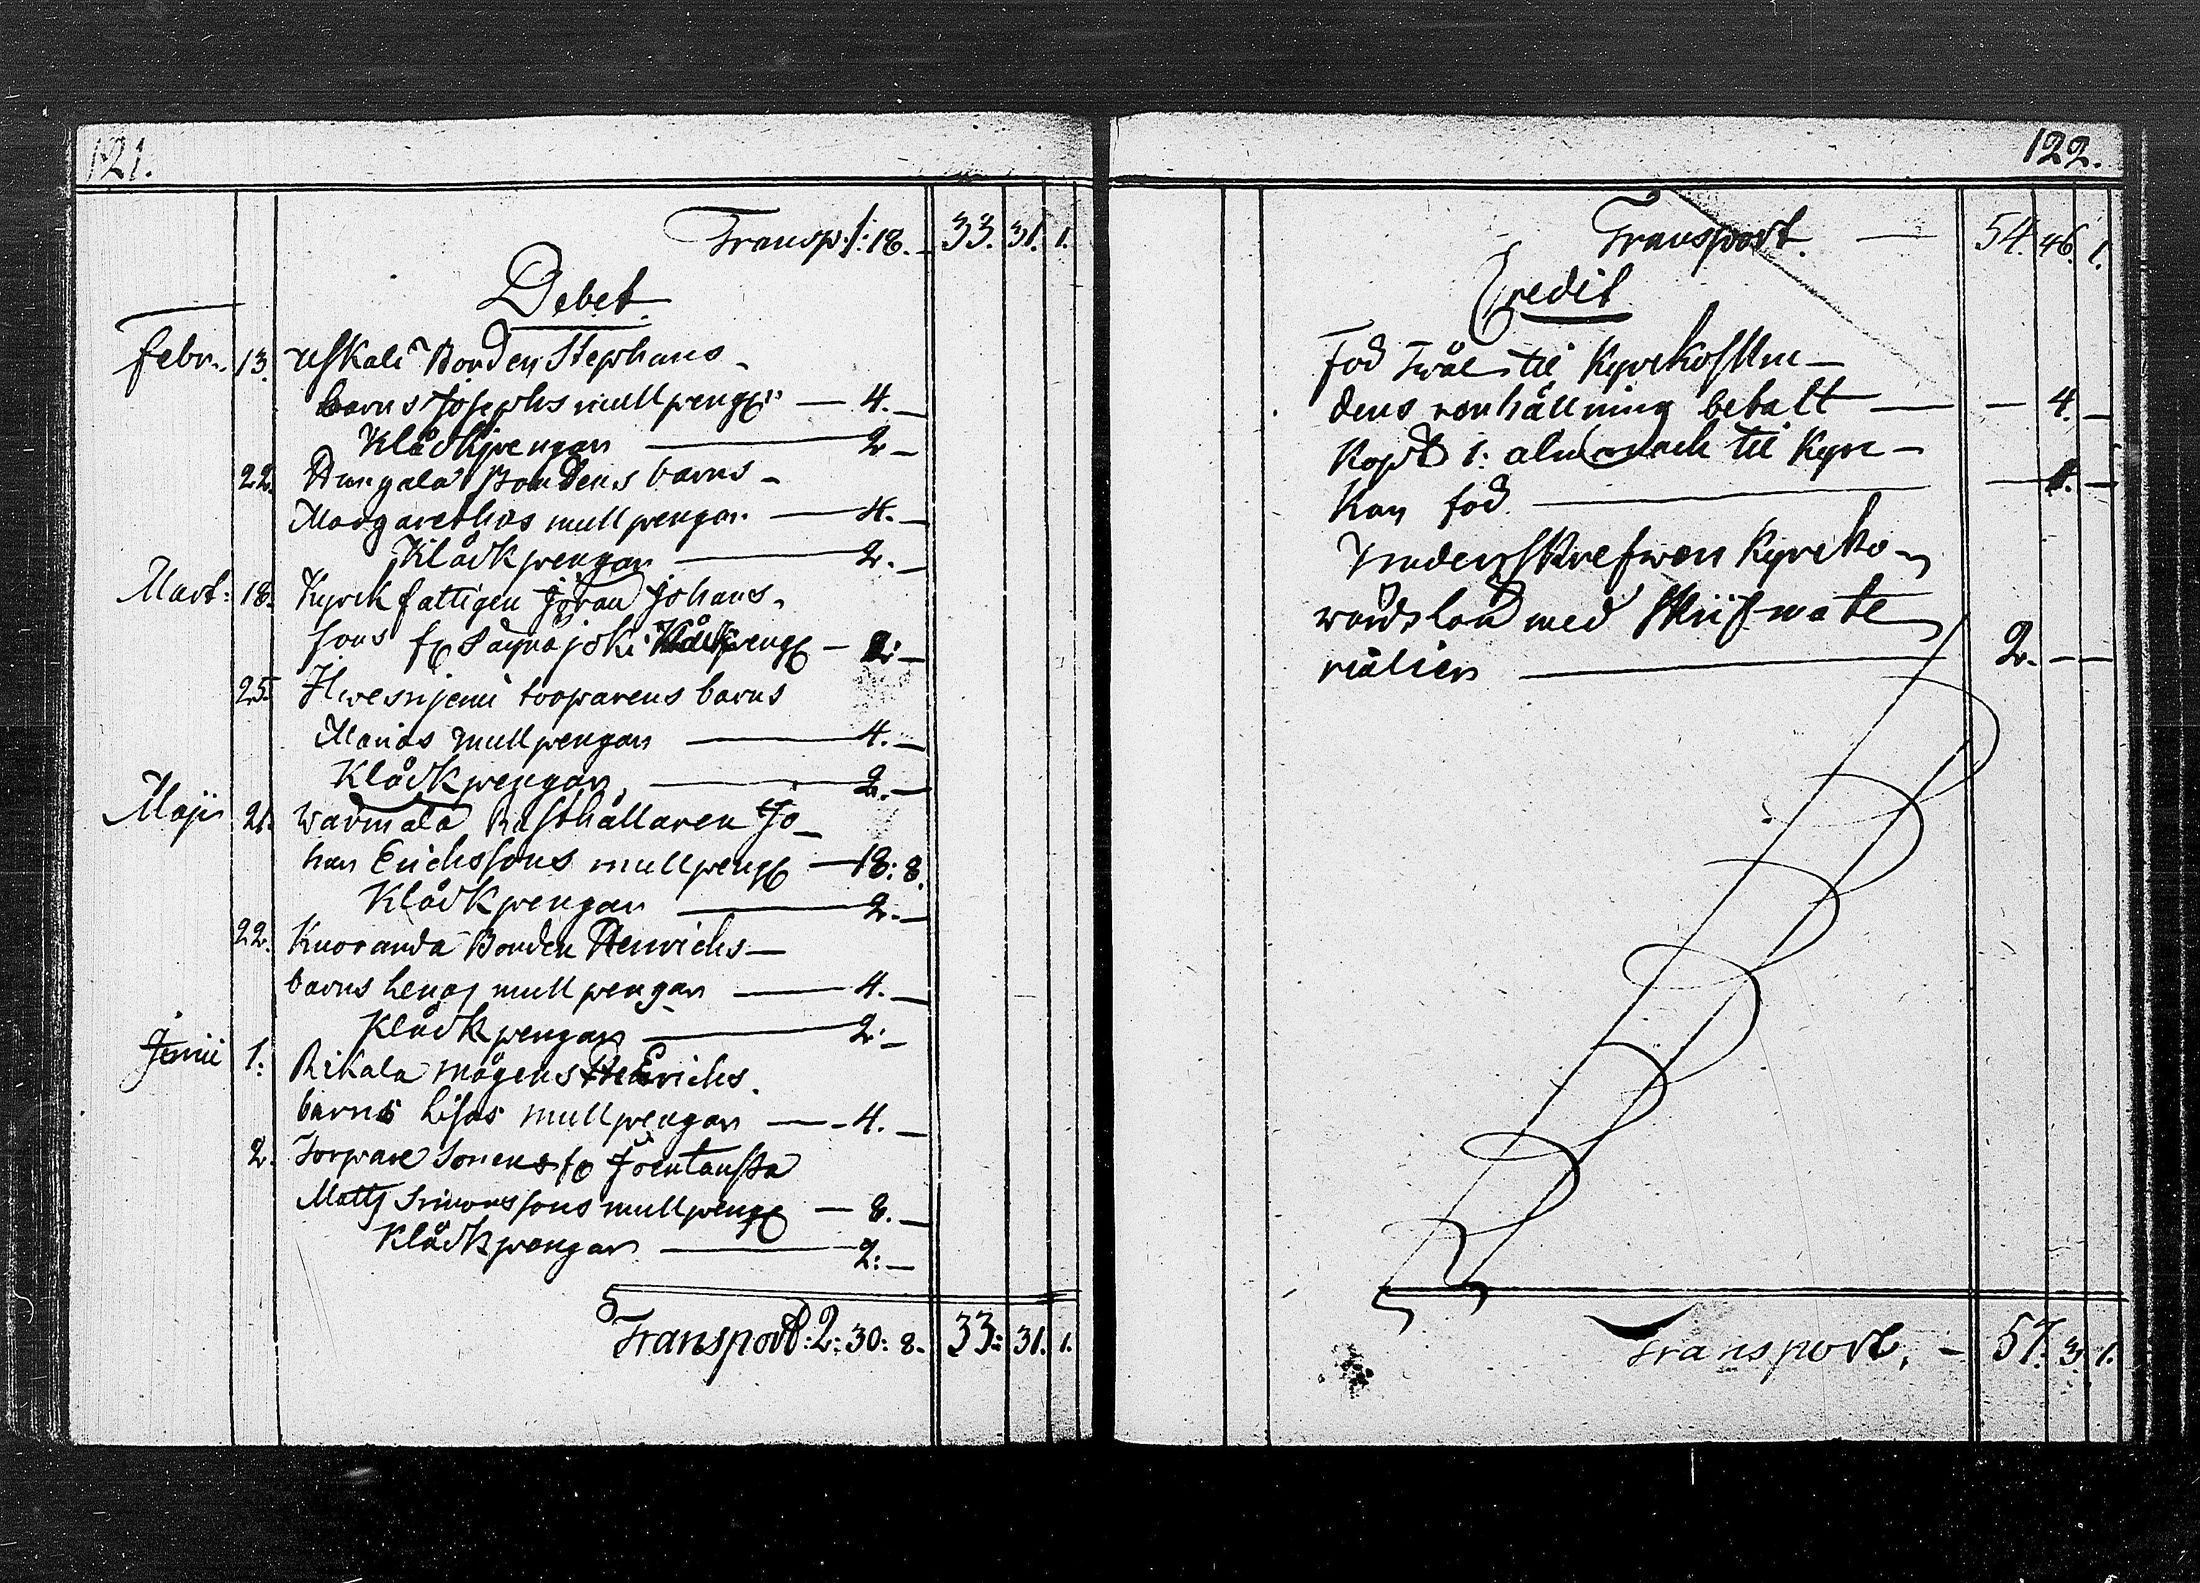 121.
Transp: 1: 18. — 33. 31. 1.
Debet.
Febr. 13. uskali Bonden Stephans
barns Josephs mullpengr — 4. —
Klåckpengar — 2 —
22. Hungala Bondens barns
Margarethas mullpengar — 4. —
Klåckpengar — 2. —
Mart: 18. Kyrckfattigen Jöran Johans-
sons fr Klåckpengr — 2: —
25. torparens barns
Marias mullpengar — 4. —
Klåckpengar — 2. —
Maji 21. Warmala Rusthållaren Jo-
han Erichssons mullpengr — 18: 8.
Klåckpengar — 2. —
22. Kuoranda Bonden Henrichs
barns Lenas mullpengar — 4. —
Klåckpengar — 2: —
Junii 1: Rikala mågens Henrichs
barns Lisas mullpengar — 4. —
2. Torpare Sonens fr Joentausta
Matts Simonssons mullpengr — 8. —
Klåckpengar — 2: —
Transport: 2: 30: 8. 33: 31. 1.
122.
Transport. — 54. 46. 1.
Credit
För twål til Kyrkoskru-
dens renhållning betalt — — 4. —
Kopt 1: almanach til Kyr-
kan för — — 1. —
Underskrefwen Kyrcko-
wärds lön med Skrifmate
rialier — 2. — —
Transport. — 57. 3. 1.